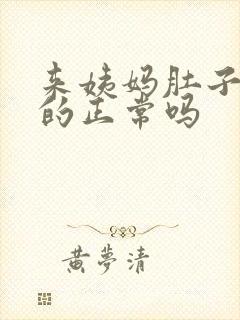 来姨妈肚子
的正常吗
黄夢清